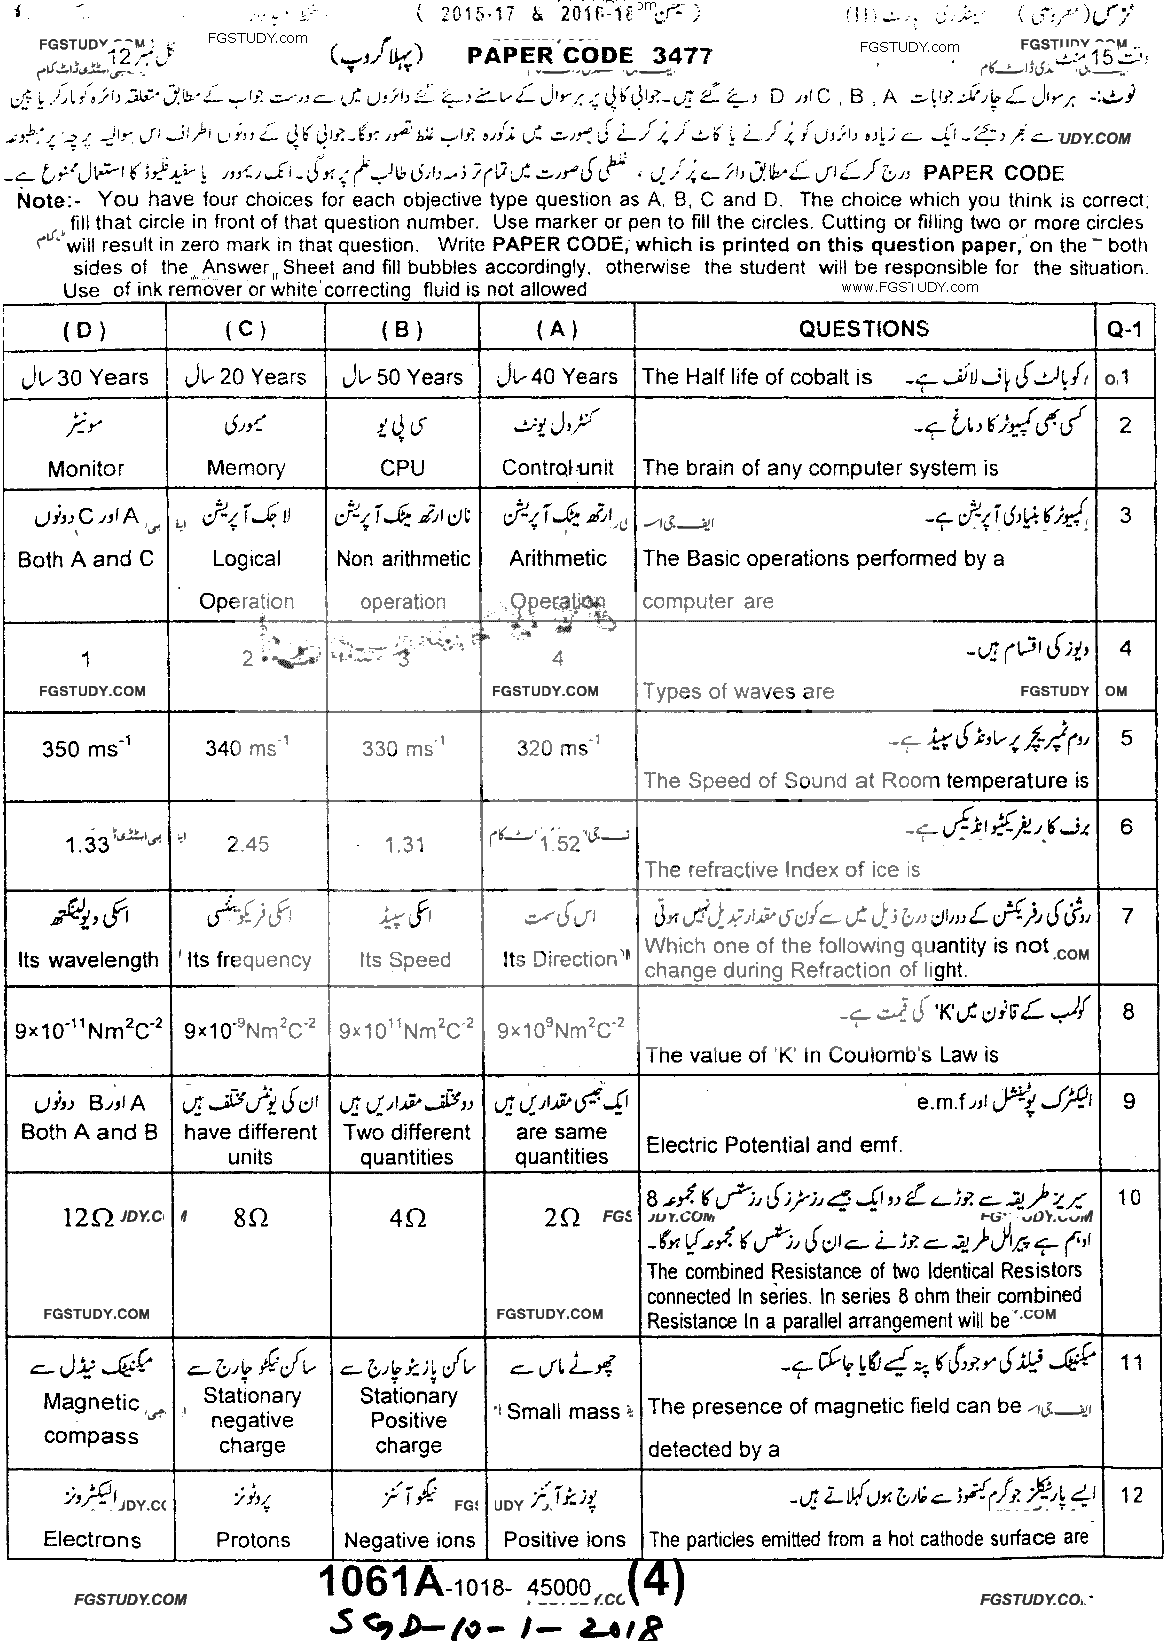 ( 2015-17 & 2016-18 سیشن )
FGSTUDY.com FGSTUDY.com
کل نمبر 12 (پہلا گروپ) PAPER CODE 3477 وقت 15 منٹ
نوٹ:- ہر سوال کے چار ممکنہ جوابات A ، B ، C اور D دیئے گئے ہیں۔ جوابی کاپی پر ہر سوال کے سامنے دیئے گئے دائروں میں سے درست جواب کے مطابق متعلقہ دائرہ کو مارکر یا پین
سے بھر دیجئے۔ ایک سے زیادہ دائروں کو پُر کرنے یا کاٹ کر پُر کرنے کی صورت میں مذکورہ جواب غلط تصور ہوگا۔ جوابی کاپی کے دونوں اطراف اس سوالیہ پرچہ پر مطبوعہ
PAPER CODE درج کر کے اس کے مطابق دائرے پُر کریں ، غلطی کی صورت میں تمام تر ذمہ داری طالب علم پر ہوگی۔ انک ریموور یا سفید فلیوڈ کا استعمال ممنوع ہے۔
Note:- You have four choices for each objective type question as A, B, C and D. The choice which you think is correct;
fill that circle in front of that question number. Use marker or pen to fill the circles. Cutting or filling two or more circles
will result in zero mark in that question. Write PAPER CODE, which is printed on this question paper, on the both
sides of the Answer Sheet and fill bubbles accordingly, otherwise the student will be responsible for the situation.
Use of ink remover or white correcting fluid is not allowed www.FGSTUDY.com
(D) (C) (B) (A) QUESTIONS Q-1
30 Years سال 20 Years سال 50 Years سال 40 Years سال The Half life of cobalt is کوبالٹ کی ہاف لائف ہے۔ 1
مونیٹر میموری سی پی یو کنٹرول یونٹ کسی بھی کمپیوٹر کا دماغ ہے۔ 2
Monitor Memory CPU Control unit The brain of any computer system is
A اور C دونوں لاجک آپریشن نان ارتھ میٹک آپریشن ارتھ میٹک آپریشن کمپیوٹر کا بنیادی آپریشن ہے۔ 3
Both A and C Logical Non arithmetic Arithmetic The Basic operations performed by a
Operation operation Operation computer are
1 2 3 4 ویوز کی اقسام ہیں۔ 4
FGSTUDY.COM FGSTUDY.COM Types of waves are FGSTUDY OM
350 ms⁻¹ 340 ms⁻¹ 330 ms⁻¹ 320 ms⁻¹ روم ٹمپریچر پر ساونڈ کی سپیڈ ہے۔ 5
The Speed of Sound at Room temperature is
1.33 2.45 1.31 1.52 برف کا ریفریکٹیو انڈیکس ہے۔ 6
The refractive Index of ice is
اسکی ویولینگتھ اسکی فریکوئنسی اسکی سپیڈ اس کی سمت روشنی کی رفریکشن کے دوران درج ذیل میں سے کون سی مقدار تبدیل نہیں ہوتی 7
Its wavelength Its frequency Its Speed Its Direction Which one of the following quantity is not .COM
change during Refraction of light.
9×10⁻¹¹Nm²C⁻² 9×10⁻⁹Nm²C⁻² 9×10¹¹Nm²C⁻² 9×10⁹Nm²C⁻² کولمب کے قانون میں 'K' کی قیمت ہے۔ 8
The value of 'K' In Coulomb's Law is
A اور B دونوں ان کی یونٹس مختلف ہیں دو مختلف مقداریں ہیں ایک جیسی مقداریں ہیں الیکٹرک پوٹینشل اور e.m.f 9
Both A and B have different Two different are same Electric Potential and emf.
units quantities quantities
12Ω 8Ω 4Ω 2Ω سیریز طریقہ سے جوڑے گئے دو ایک جیسے رزسٹرز کی رزسٹنس کا مجموعہ 8 10
اوہم ہے پیرالل طریقہ سے جوڑنے سے ان کی رزسٹنس کا مجموعہ کیا ہوگا۔
The combined Resistance of two Identical Resistors
connected In series. In series 8 ohm their combined
FGSTUDY.COM FGSTUDY.COM Resistance In a parallel arrangement will be .COM
میگنیٹک نیڈل سے ساکن نیگٹو چارج سے ساکن پازیٹو چارج سے چھوٹے ماس سے میگنیٹک فیلڈ کی موجودگی کا پتہ کیسے لگایا جا سکتا ہے۔ 11
Magnetic Stationary Stationary Small mass The presence of magnetic field can be
compass negative Positive detected by a
charge charge
الیکٹرونز پروٹونز نیگٹو آئنز پوزیٹو آئنز ایسے پارٹیکلز جو گرم کیتھوڈ سے خارج ہوں کہلاتے ہیں۔ 12
Electrons Protons Negative ions Positive ions The particles emitted from a hot cathode surface are
1061A-1018- 45000 (4)
FGSTUDY.COM FGSTUDY.CO
SGD-10-1-2018